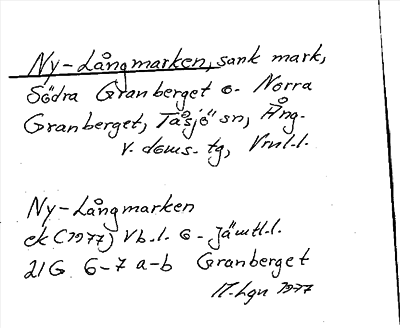 Ny-Långmarken, sank mark,
Södra Granberget o. Norra
Granberget, Tåsjö sn, Ång.
v. doms. tg, Vml.l.
Ny-Långmarken
ek (1977) Vb.l. o. Jämtl.l.
21G 6-7 a-b Granberget
1977